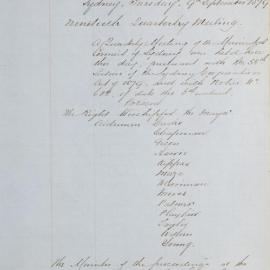 Sydney, Tuesday, 9th September 1879
Nineteenth Quarterly Meeting.
A Quarterly Meeting of the Municipal
Council of Sydney was held here
this day, pursuant with the 58th
Section of the Sydney Corporation
Act of 1879, and
of date the 5th instant
Present
The Right Worshipful the Mayor
Aldermen
Chapman
Green
Kippax
Meeks
Merriman
Palmer
Playfair
Taylor
Young.
The Minutes of the proceedings of the